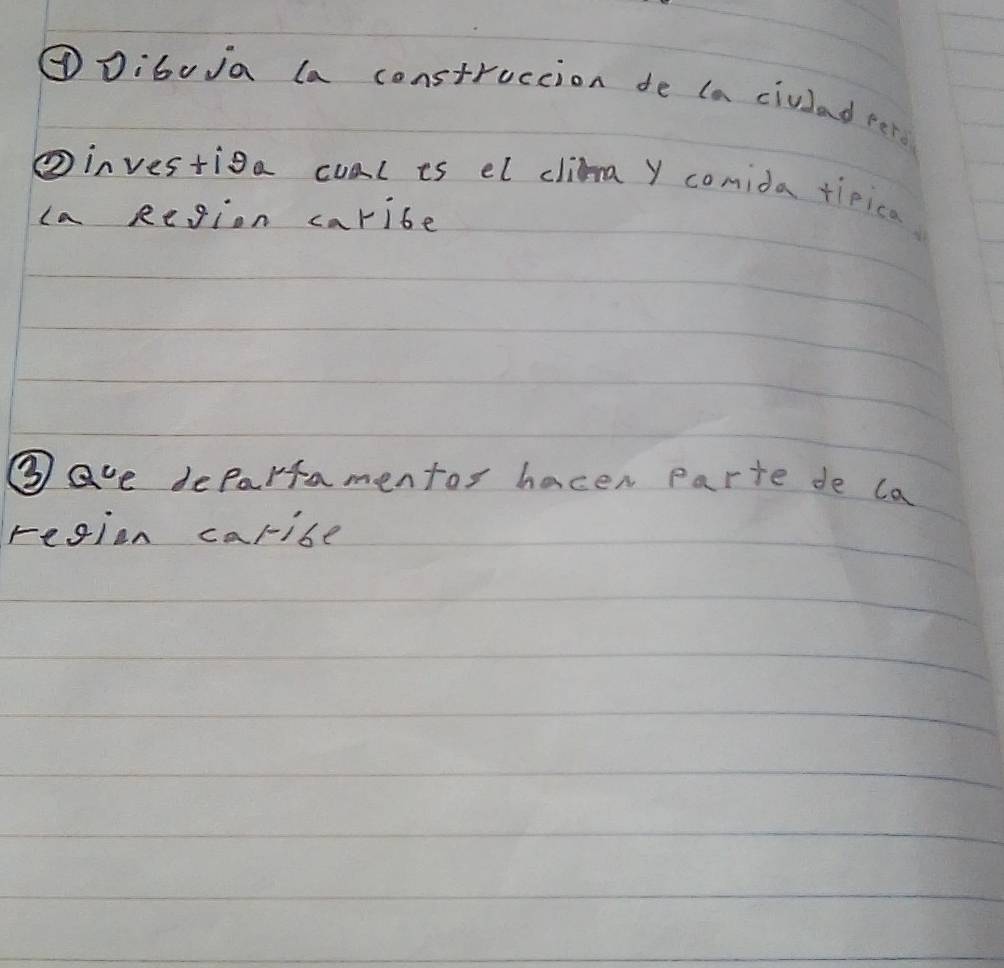 ① Dibuja la construccion de la ciudad
② investiga cual es el clima y comida tipica
la Region caribe
③ Que departamentos hacen parte de la
region caribe